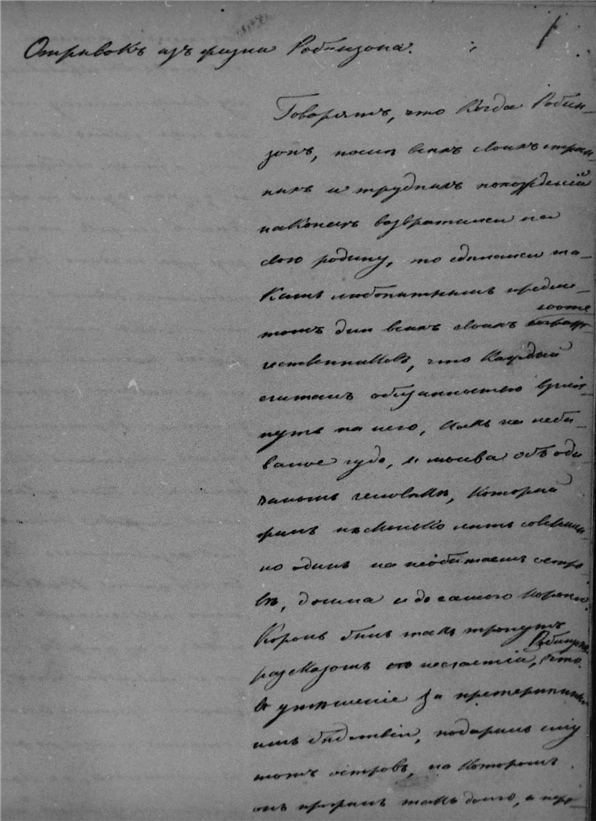 Отрывокъ изъ жизни Робинзона.
Говорятъ, что когда Робин-
зонъ, послѣ всѣхъ своихъ стран-
ныхъ и трудныхъ похожденій
наконецъ возвратился на
свою родину, то сдѣлался та-
кимъ любопытнымъ предме-
томъ для всѣхъ своихъ сооте-
чественниковъ, что каждый
считалъ обязанностью взгля-
нуть на него, какъ на небы-
валое чудо, и молва объ оди-
чаломъ человѣкѣ, который
жилъ нѣсколько лѣтъ совершен-
но одинъ на необитаемъ остро-
вѣ, дошла и до самого короля.
Король былъ такъ тронутъ
разсказомъ Робинзона несчастій, что
въ утѣшеніе за претерпѣнныя
имъ бѣдствія, подарилъ ему
тотъ островъ, на которомъ
онъ прожилъ такъ долго, и